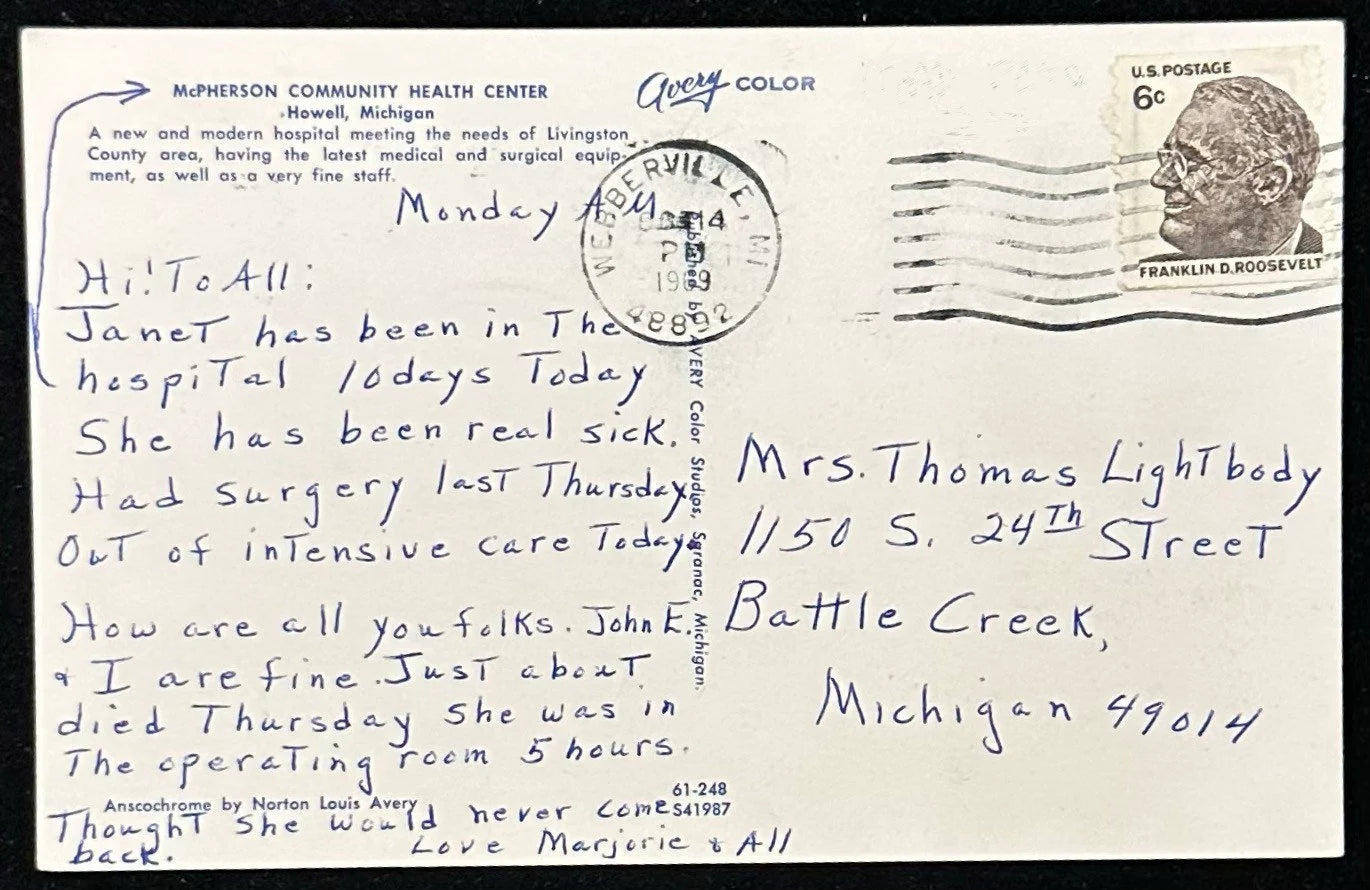 McPHERSON COMMUNITY HEALTH CENTER
Howell, Michigan
A new and modern hospital meeting the needs of Livingston
County area, having the latest medical and surgical equip-
ment, as well as a very fine staff.
Avery COLOR
U.S. POSTAGE
6c
FRANKLIN D. ROOSEVELT
WEBBERVILLE, MI
14
1969
48892
Monday AM
Hi! To All:
Janet has been in The
hospital 10 days Today
She has been real sick.
Had surgery last Thursday
Out of intensive care Today
How are all you folks. John E.
& I are fine. Just about
died Thursday she was in
The operating room 5 hours.
Thought she would never come
back.
Love Marjorie & All
Published by AVERY Color Studios, Saranac, Michigan.
Mrs. Thomas Lightbody
1150 S. 24Th Street
Battle Creek,
Michigan 49014
Anscochrome by Norton Louis Avery
61-248
S41987